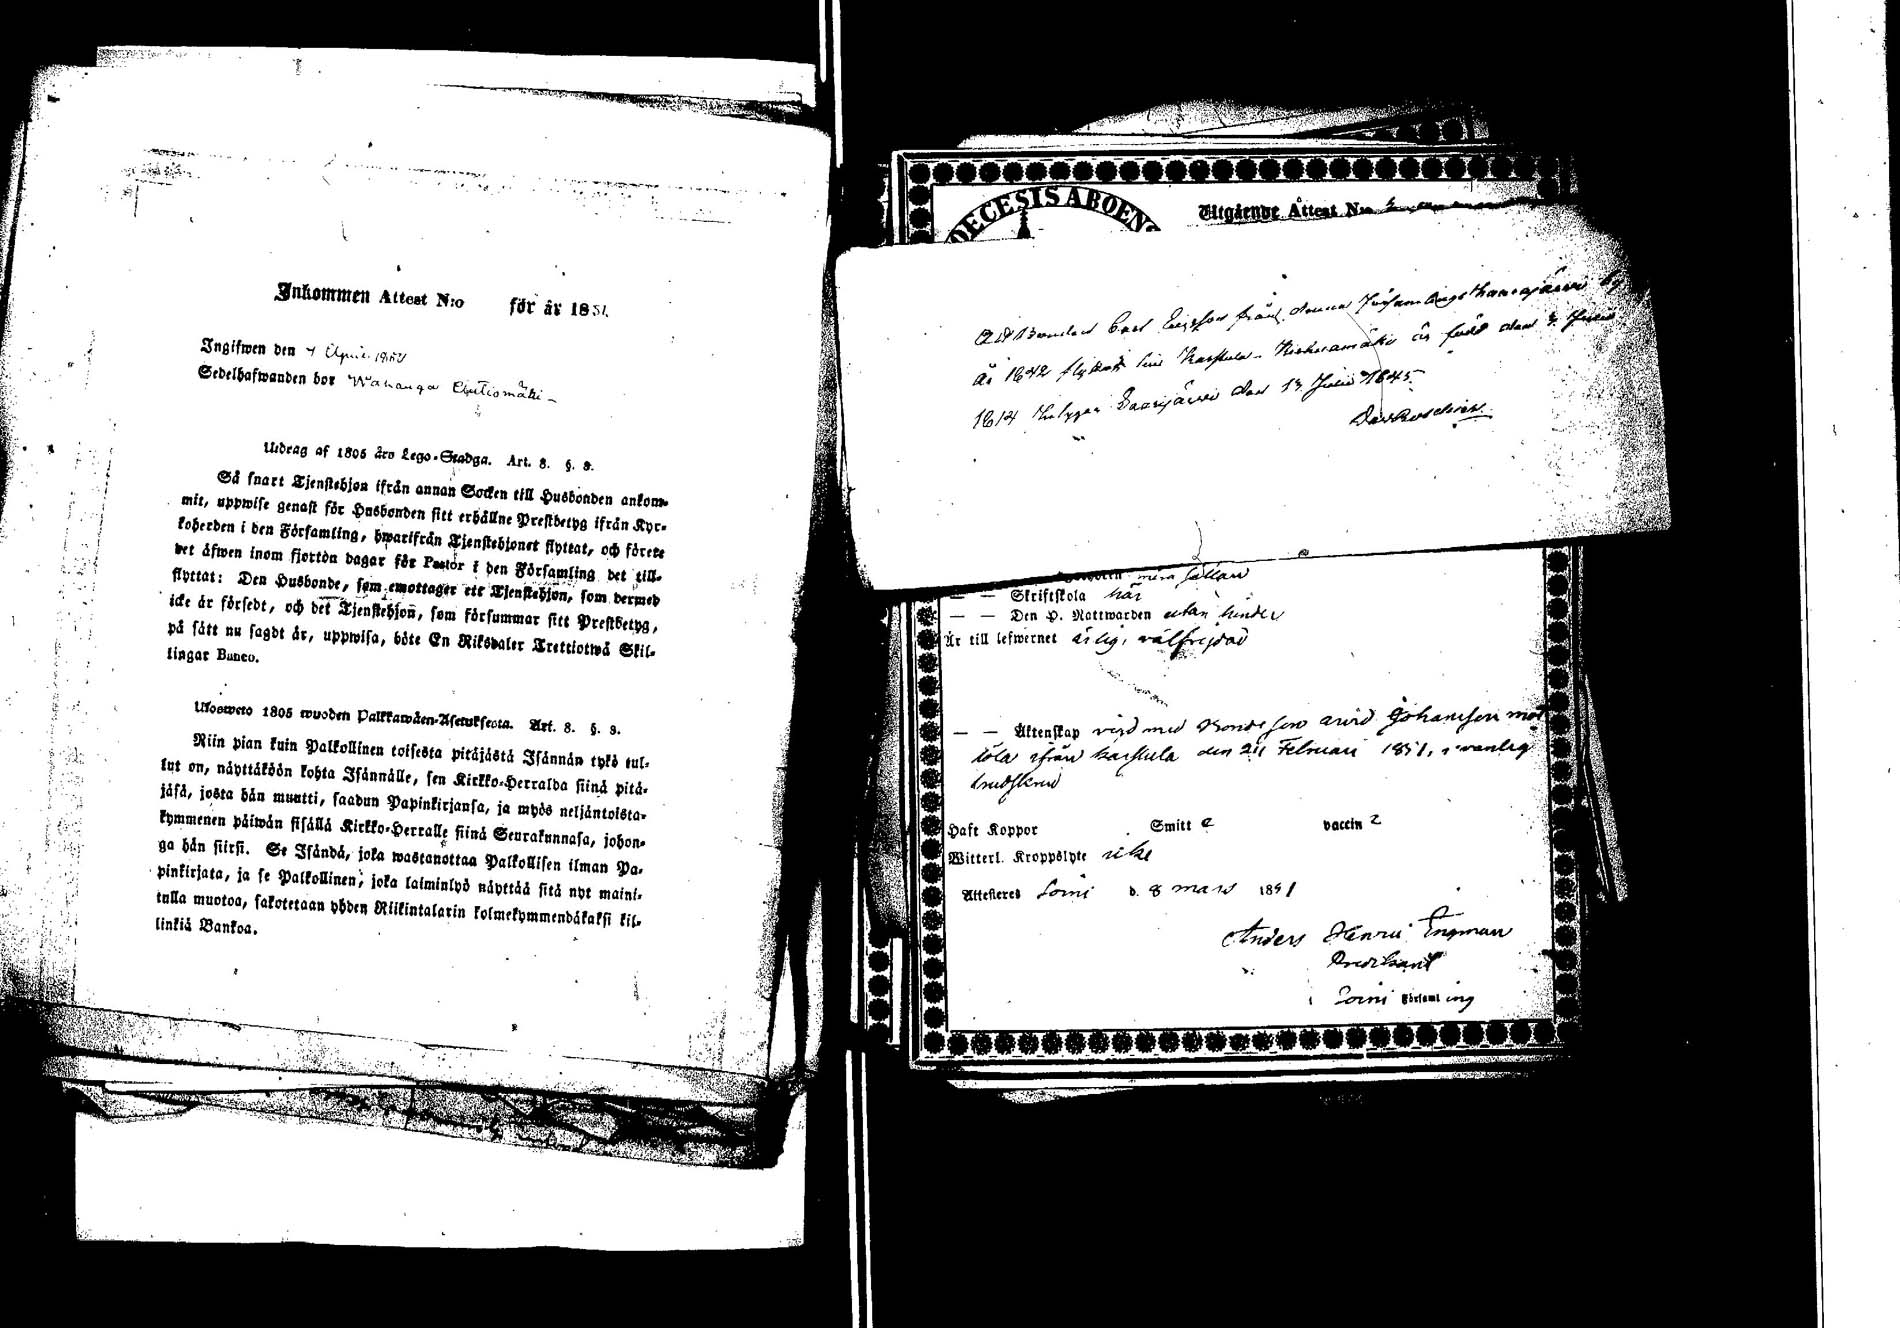 Inkommen Attest N:o för år 1851.
Ingifwen den 4 April 1851
Sedelhafwanden bor Wahanga Autiomäki
Utdrag af 1805 års Lego-Stadga. Art. 8. §. 8.
Så snart Tjenstehjon ifrån annan Socken till Husbonden ankom-
mit, uppwise genast för Husbonden sitt erhållne Prestbetyg ifrån Kyr-
koherden i den Församling, hwarifrån Tjenstehjonet flyttat, och förete
det äfwen inom fjorton dagar för Pastor i den Församling det till-
flyttat: Den Husbonde, som emottager ett Tjenstehjon, som dermed
icke är försedt, och det Tjenstehjon, som försummar sitt Prestbetyg,
på sätt nu sagdt är, uppwisa, böte En Riksdaler Trettiotwå Skil-
lingar Banco.
Ulosweto 1805 wuoden Palkkawäen-Asetuksesta. Art. 8. §. 8.
Niin pian kuin Palkollinen toisesta pitäjästä Isännän tykö tul-
lut on, näyttäköön kohta Isännälle, sen Kirkko-Herralda siinä pitä-
jäsä, josta hän muutti, saadun Papinkirjansa, ja myös neljäntoista-
kymmenen päiwän sisällä Kirkko-Herralle siinä Seurakunnasa, johon-
ga hän siirsi. Se Isändä, joka wastanottaa Palkollisen ilman Pa-
pinkirjata, ja se Palkollinen, joka laiminlyö näyttää sitä nyt maini-
tulla muotoa, sakotetaan yhden Riikintalarin kolmekymmendäkaksi kil-
linkiä Bankoa.
DECESIS ABOENS
Utgående Attest N:o
Att Bonden Carl från denna Församlings
år 1842 flyttat till Karstula är född den 3 Julii
1814 Saarijärvi den 13 Julii 1845.
Skriftskola här
Den H. Nattwarden utan hinder
Är till lefwernet ärlig, välfrejdad
Äktenskap vigd med Bondeson Johansson
ifrån Karstula den 21 Februari 1851, i vanlig
brudskrud
Haft Koppor Smitt vaccin
Witterl. Kroppslyte icke
Attesteres Soini d. 8 mars 1851
Anders Henric Engman
Predikant
Soini Församling